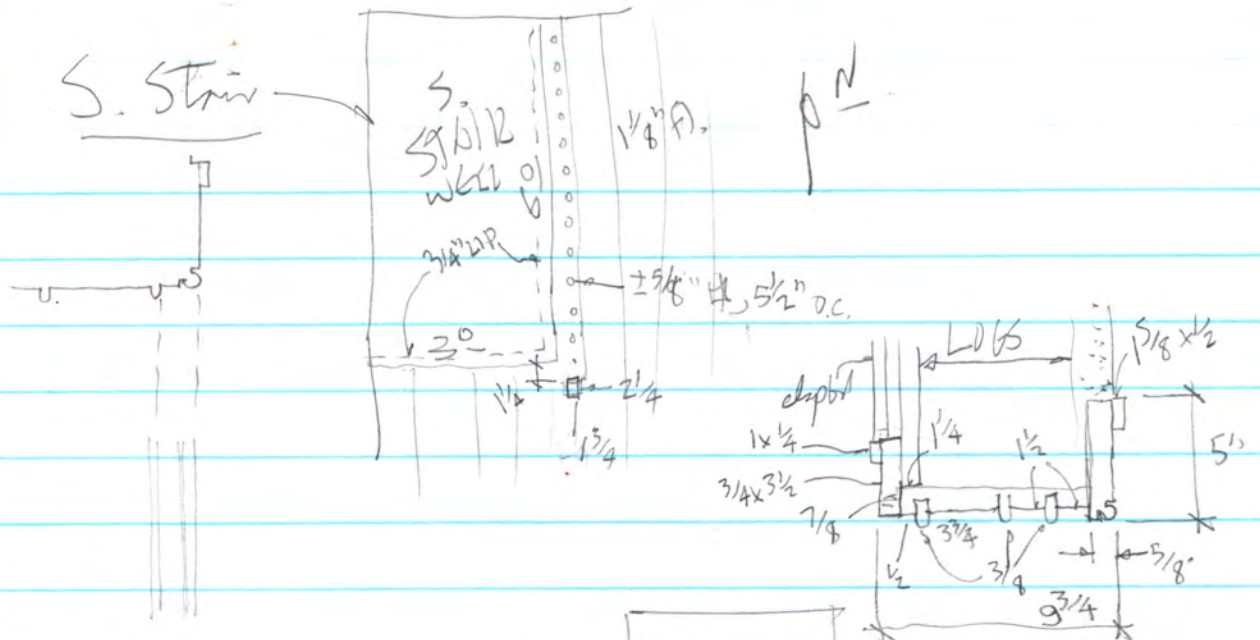 S. Stair
S.
STAIR
WELL
1 1/8" Fl.
N
3/4" LIP
± 5/8" 5 1/2" O.C.
3⁰
1 1/4
2 1/4
1 3/4
LOGS
1 5/8 x 1/2
clapb'd
1 x 1/4
1 1/4
1 1/2
3/4 x 3 1/2
7/8
3 3/4
1/2
3/8
5/8"
9 3/4